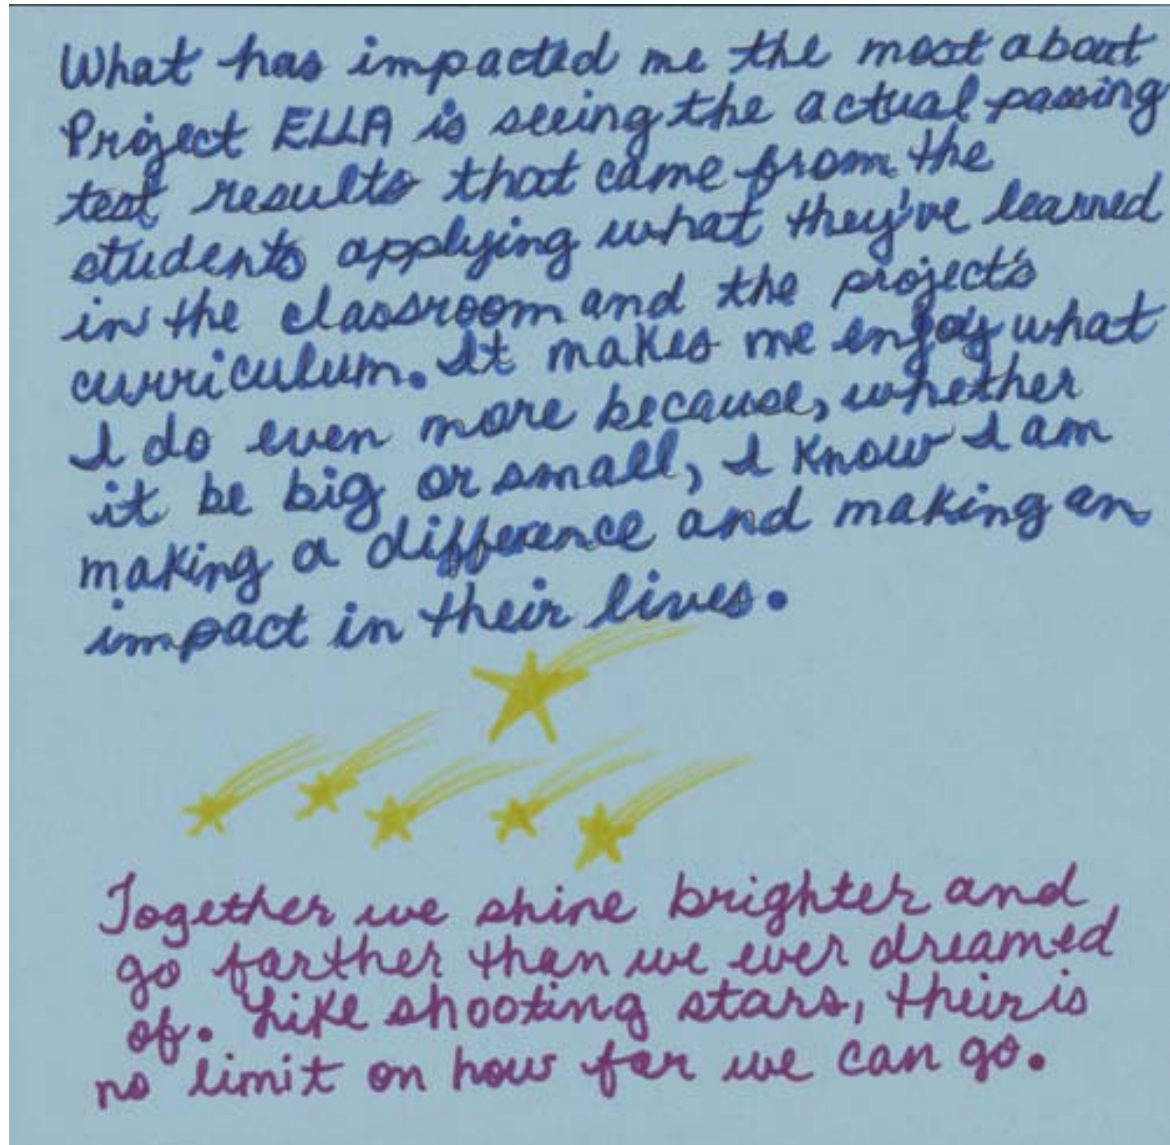 What has impacted me the most about
Project ELLA is seeing the actual passing
test results that came from the
students applying what they've learned
in the classroom and the project's
curriculum. It makes me enjoy what
I do even more because, whether
it be big or small, I know I am
making a difference and making an
impact in their lives.
Together we shine brighter and
go farther than we ever dreamed
of. Like shooting stars, their is
no limit on how far we can go.